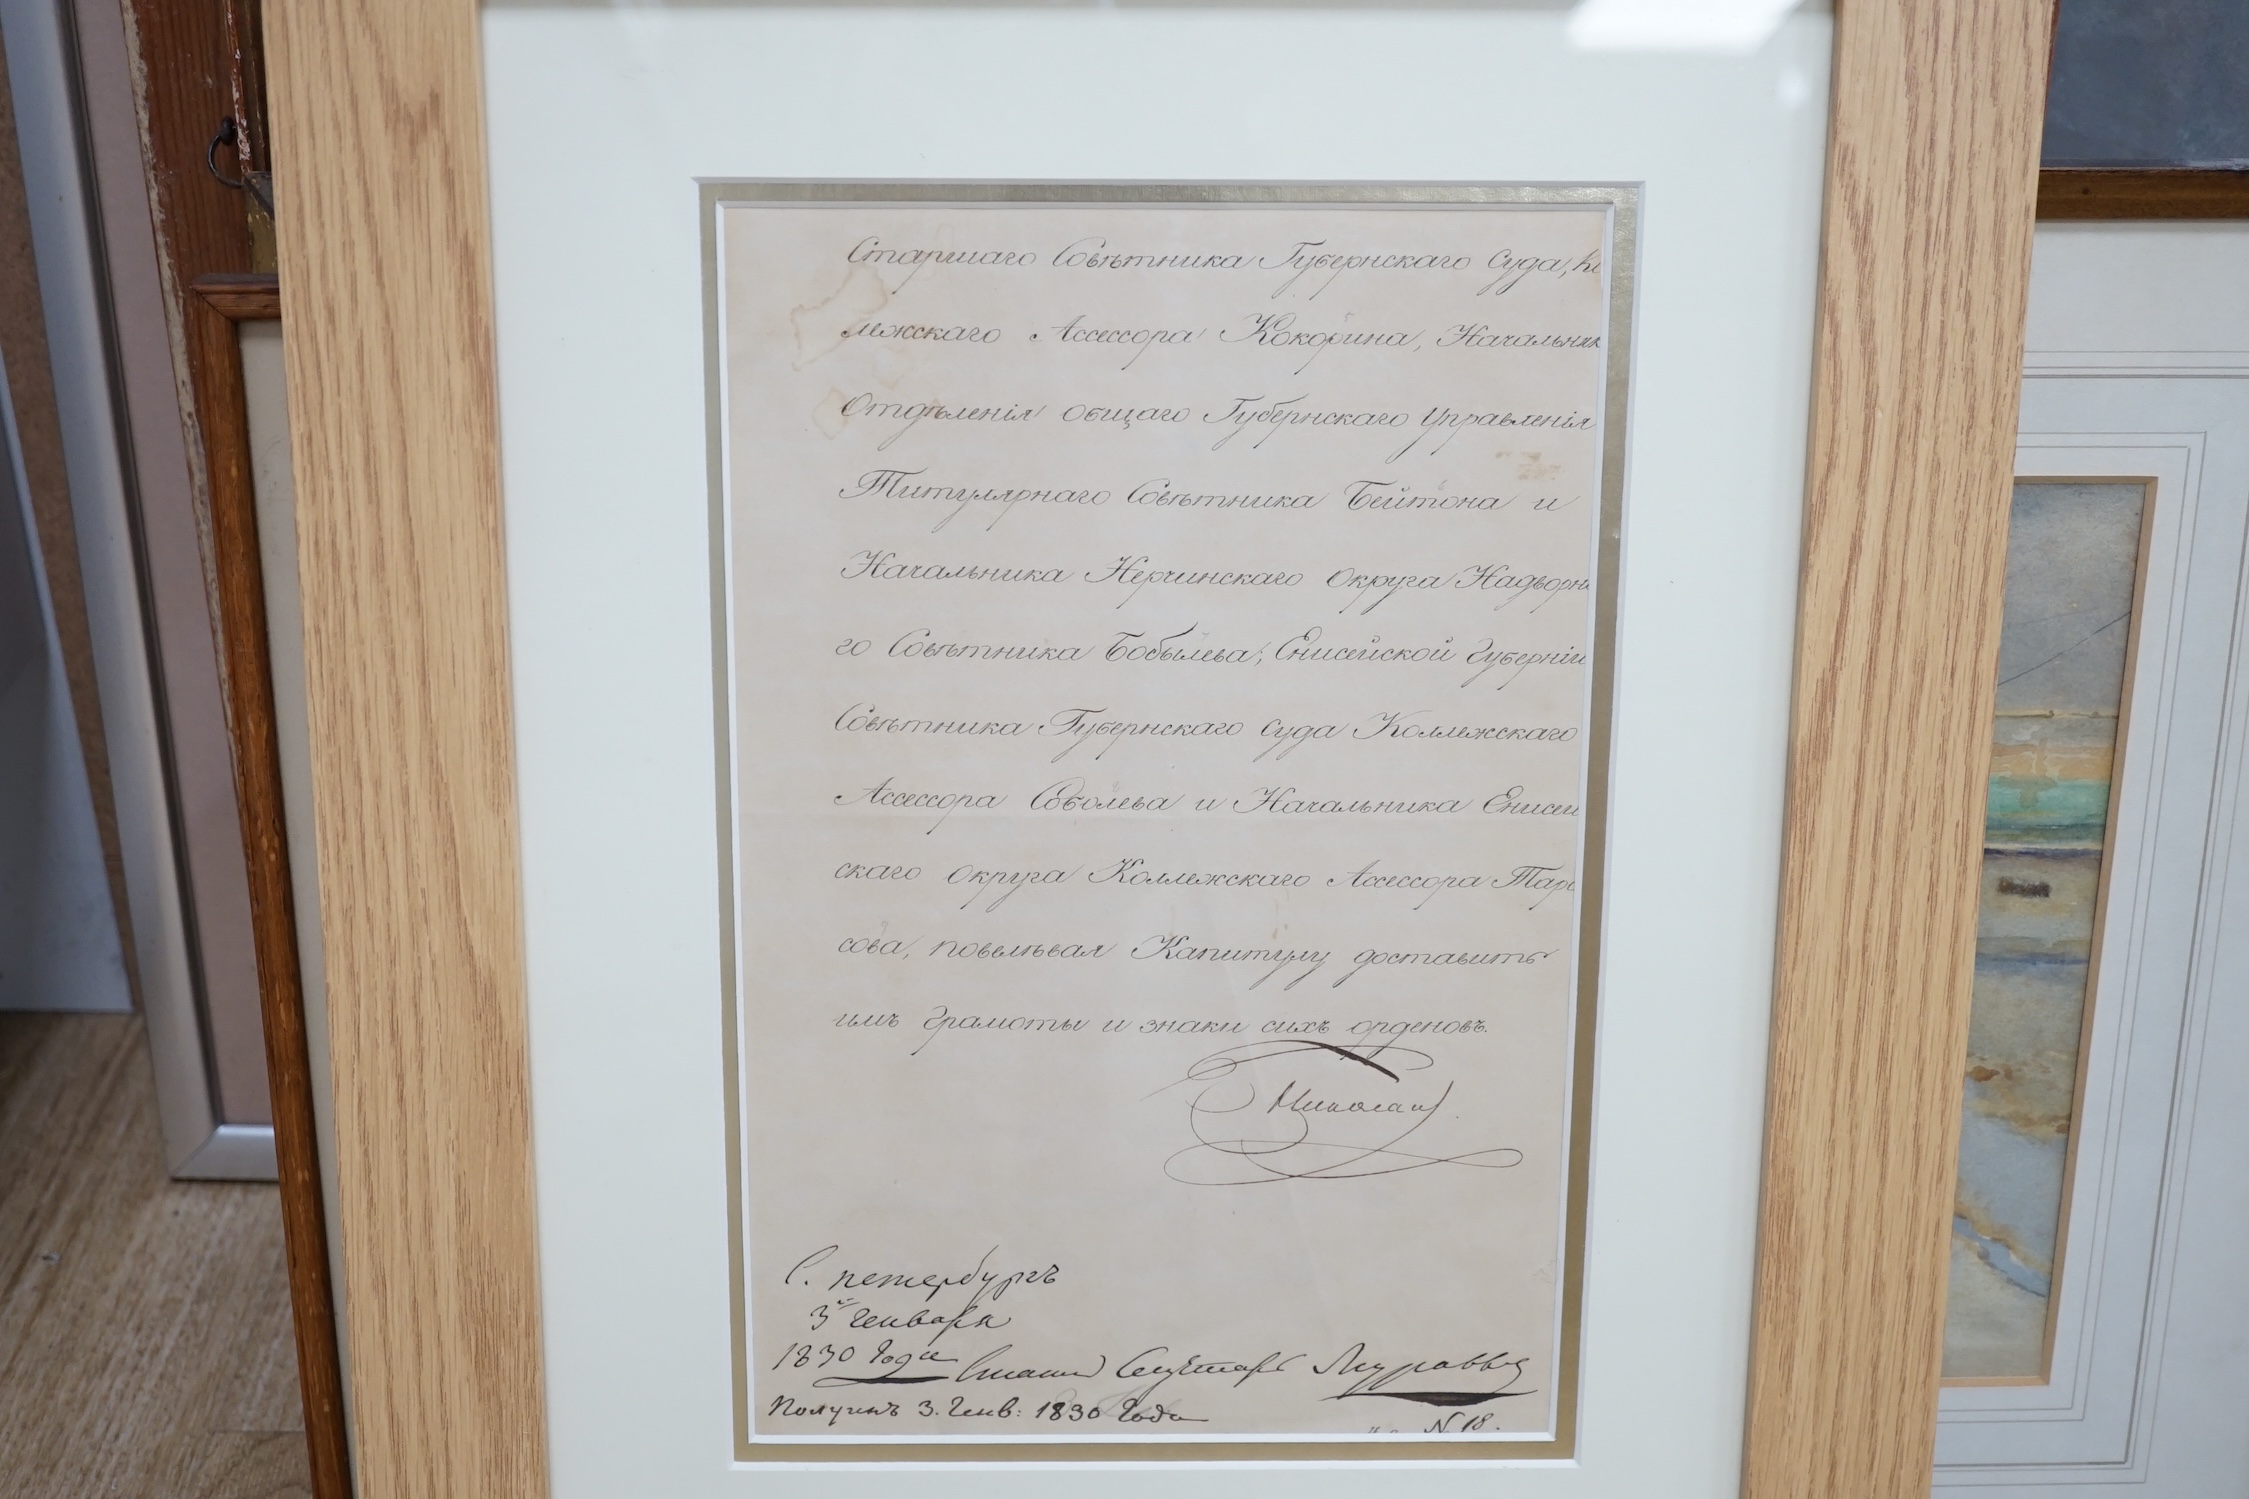 Старшаго Совѣтника Губернскаго Суда, Ко
лежскаго Ассессора Кокорина, Начальник
Отдѣленія общаго Губернскаго Управленія
Титулярнаго Совѣтника Бейтона и
Начальника Нерчинскаго Округа Надворна
го Совѣтника Бобылева; Енисейской Губерніи
Совѣтника Губернскаго Суда Коллежскаго
Ассессора Соболева и Начальника Енисей
скаго Округа Коллежскаго Ассессора Тара
сова, повелѣвая Капитулу доставить
имъ грамоты и знаки сихъ орденовъ.
Николай
С. петербургъ
3го Генваря
1830 года
Статсъ Секретарь Муравьев
Получено 3. Генв: 1830 года
N. 18.